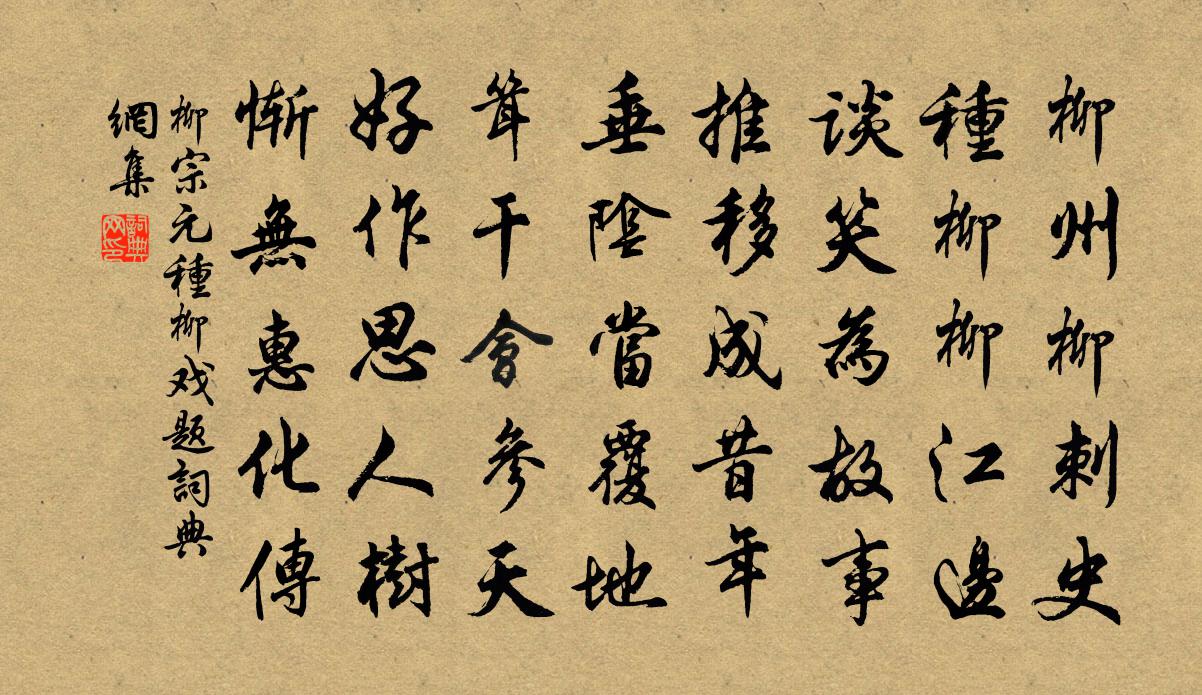 柳州柳刺史
種柳柳江邊
谈笑為故事
推移成昔年
垂陰當覆地
耸干會參天
好作思人樹
惭無惠化傳
柳宗元種柳戏题詞典
網集
詞典网印